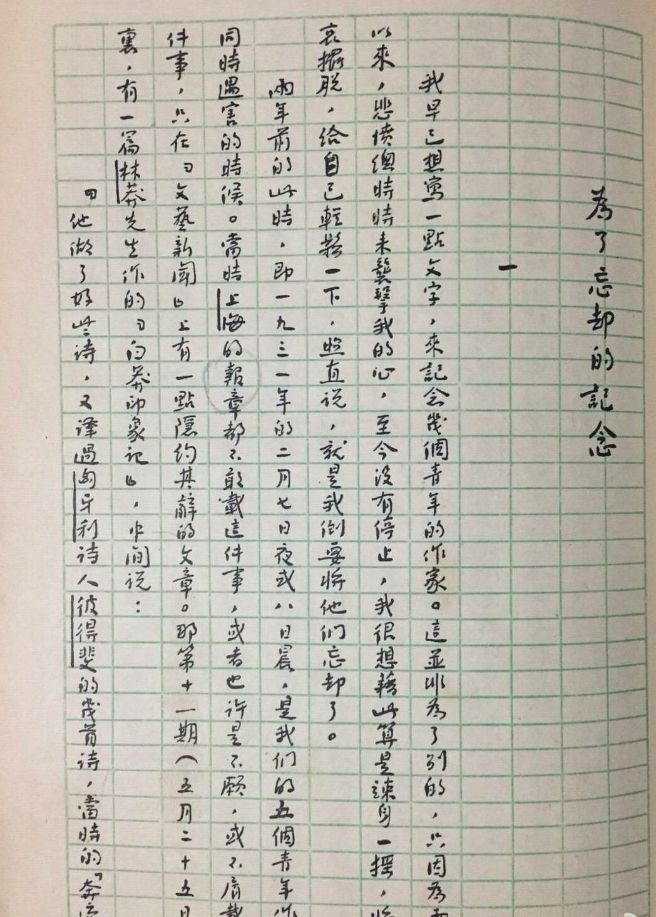 為了忘却的記念
一
我早已想寫一點文字，來記念幾個青年的作家。這並非為了別的，只因為
以來，悲憤總時時來襲擊我的心，至今沒有停止，我很想藉此算是竦身一摇，將
哀擺脫，給自己輕鬆一下，照直说，就是我倒要將他们忘却了。
兩年前的此時，即一九三一年的二月七日夜或八日晨，是我们的五個青年作
同時遇害的時候。當時上海的報章都不敢載這件事，或者也許是不願，或不屑載
件事，只在『文藝新聞』上有一點隱約其辭的文章。那第十一期（五月二十五日
裏，有一篇林莽先生作的『白莽印象記』，中间说：
『他做了好些诗，又譯過匈牙利诗人彼得斐的幾首诗，當時的『奔流